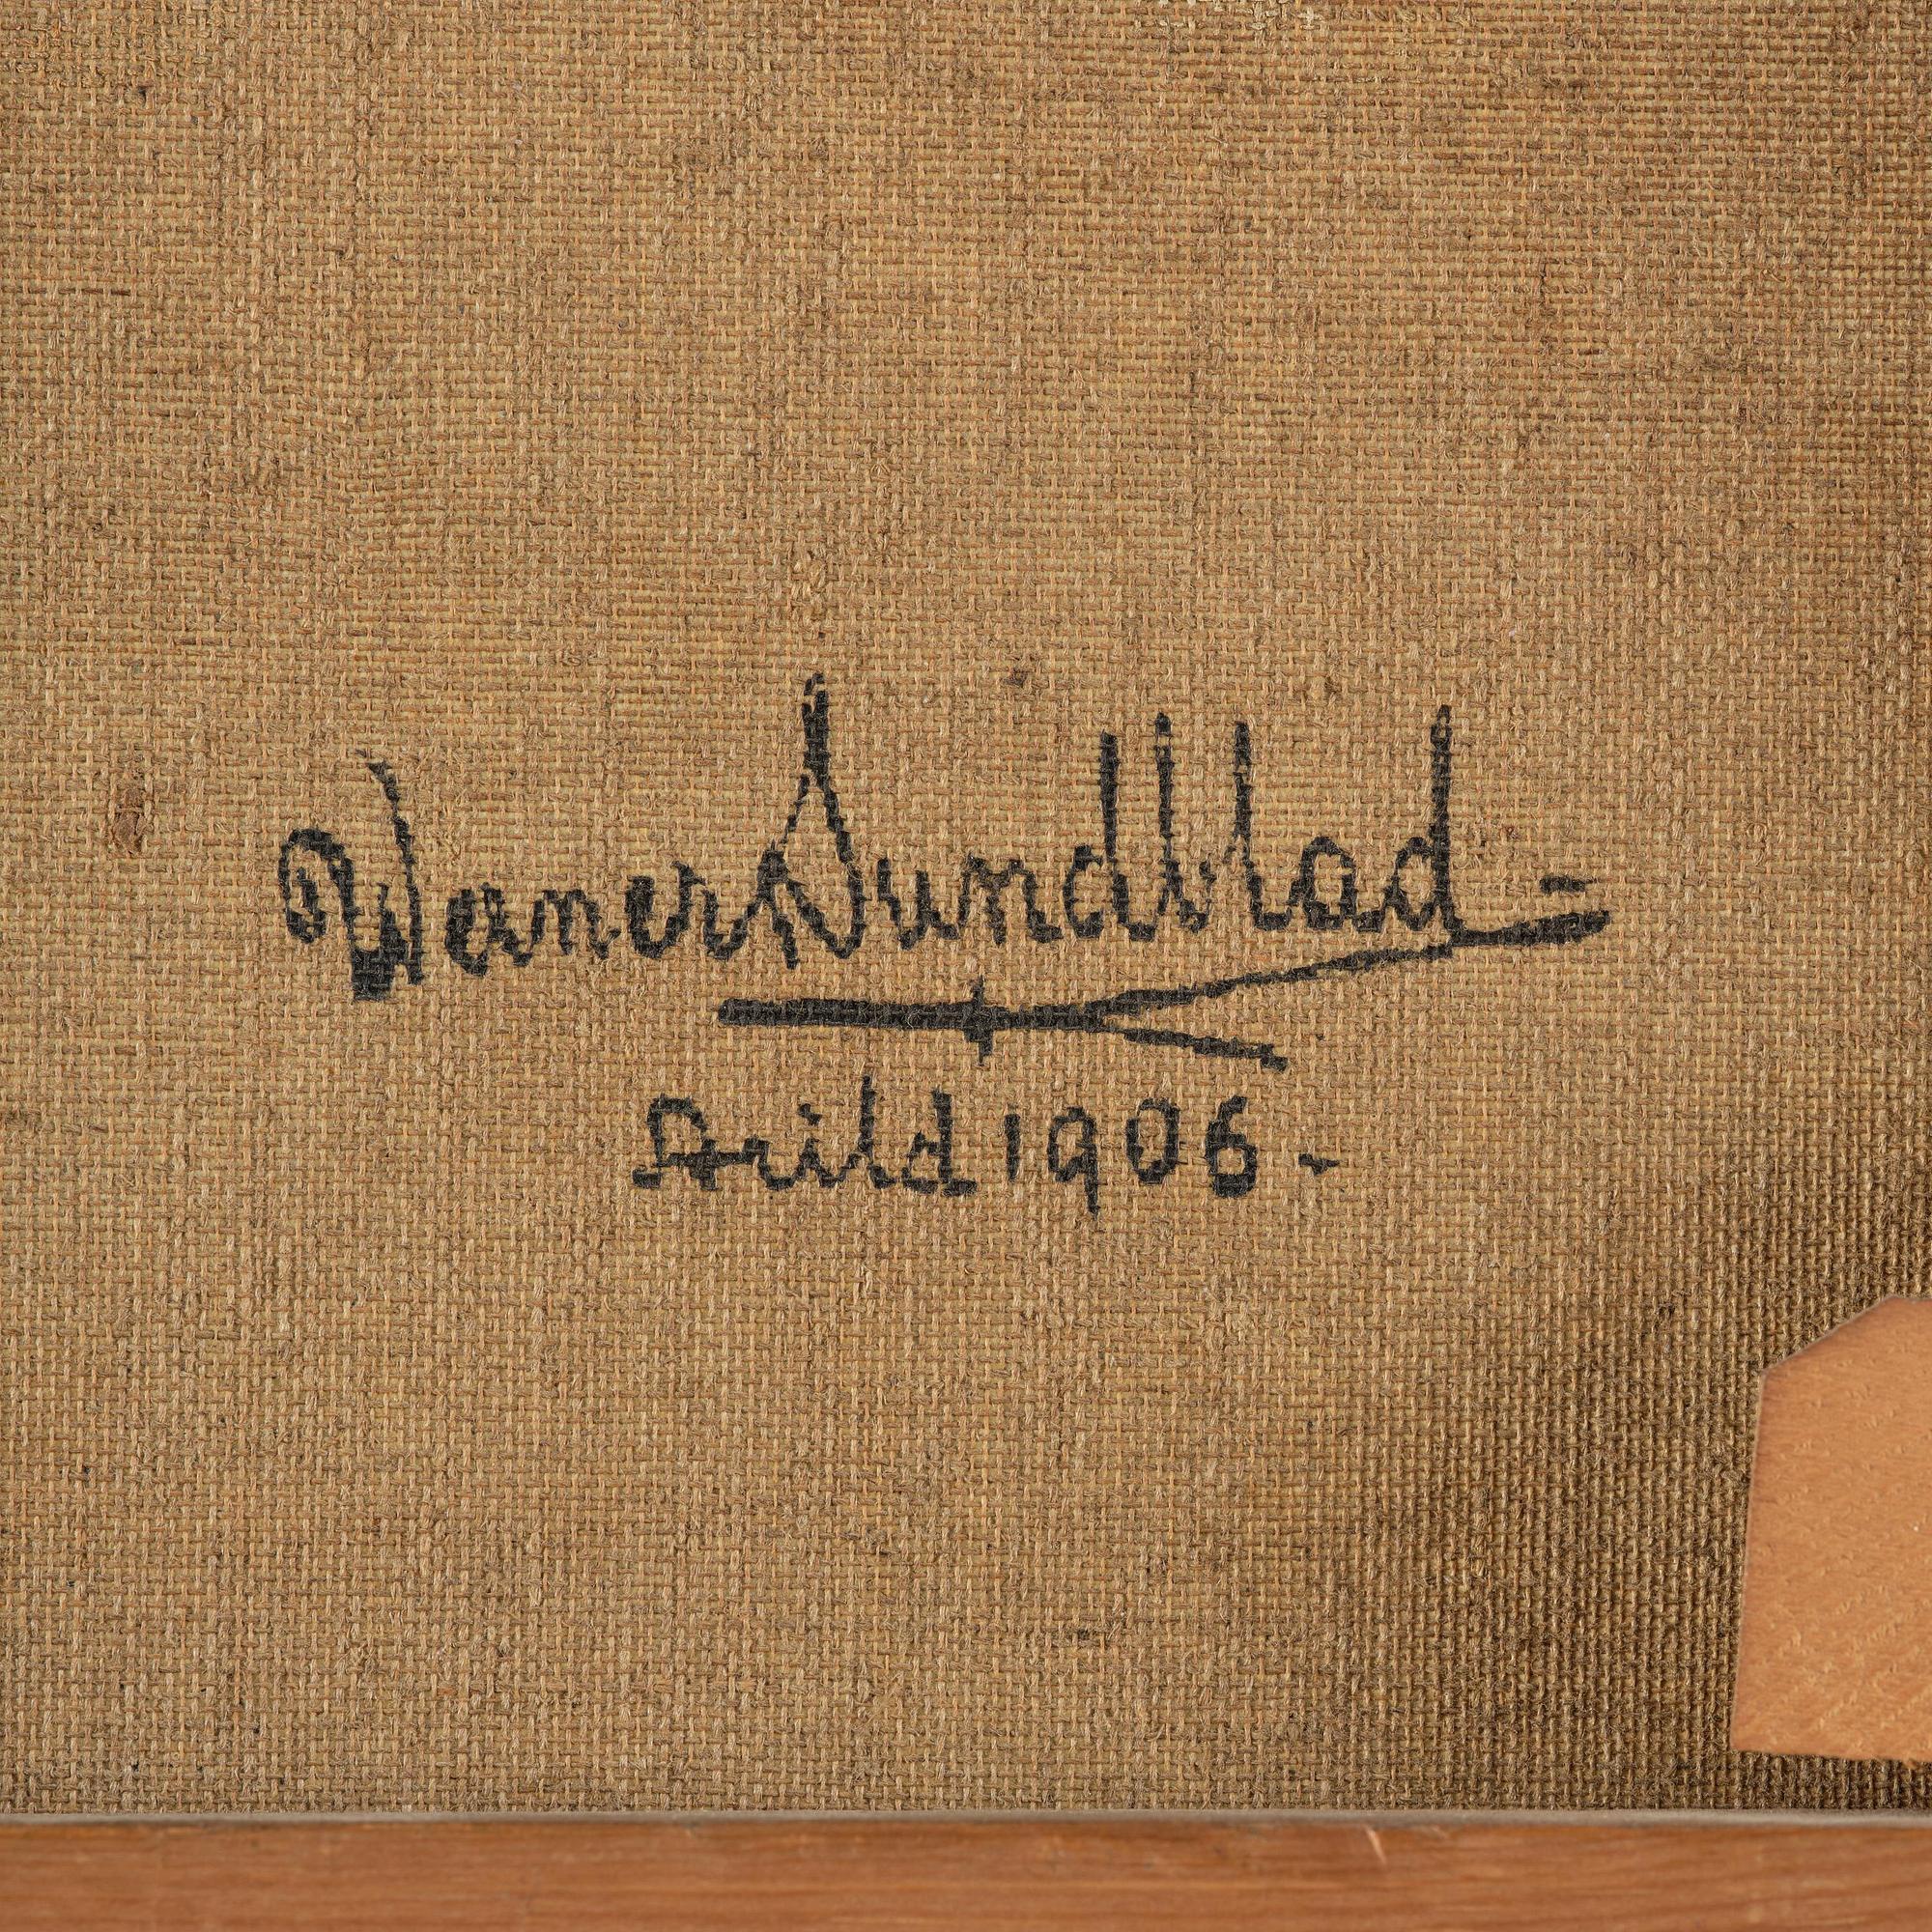 Werner Sundblad -
Arild 1906 -